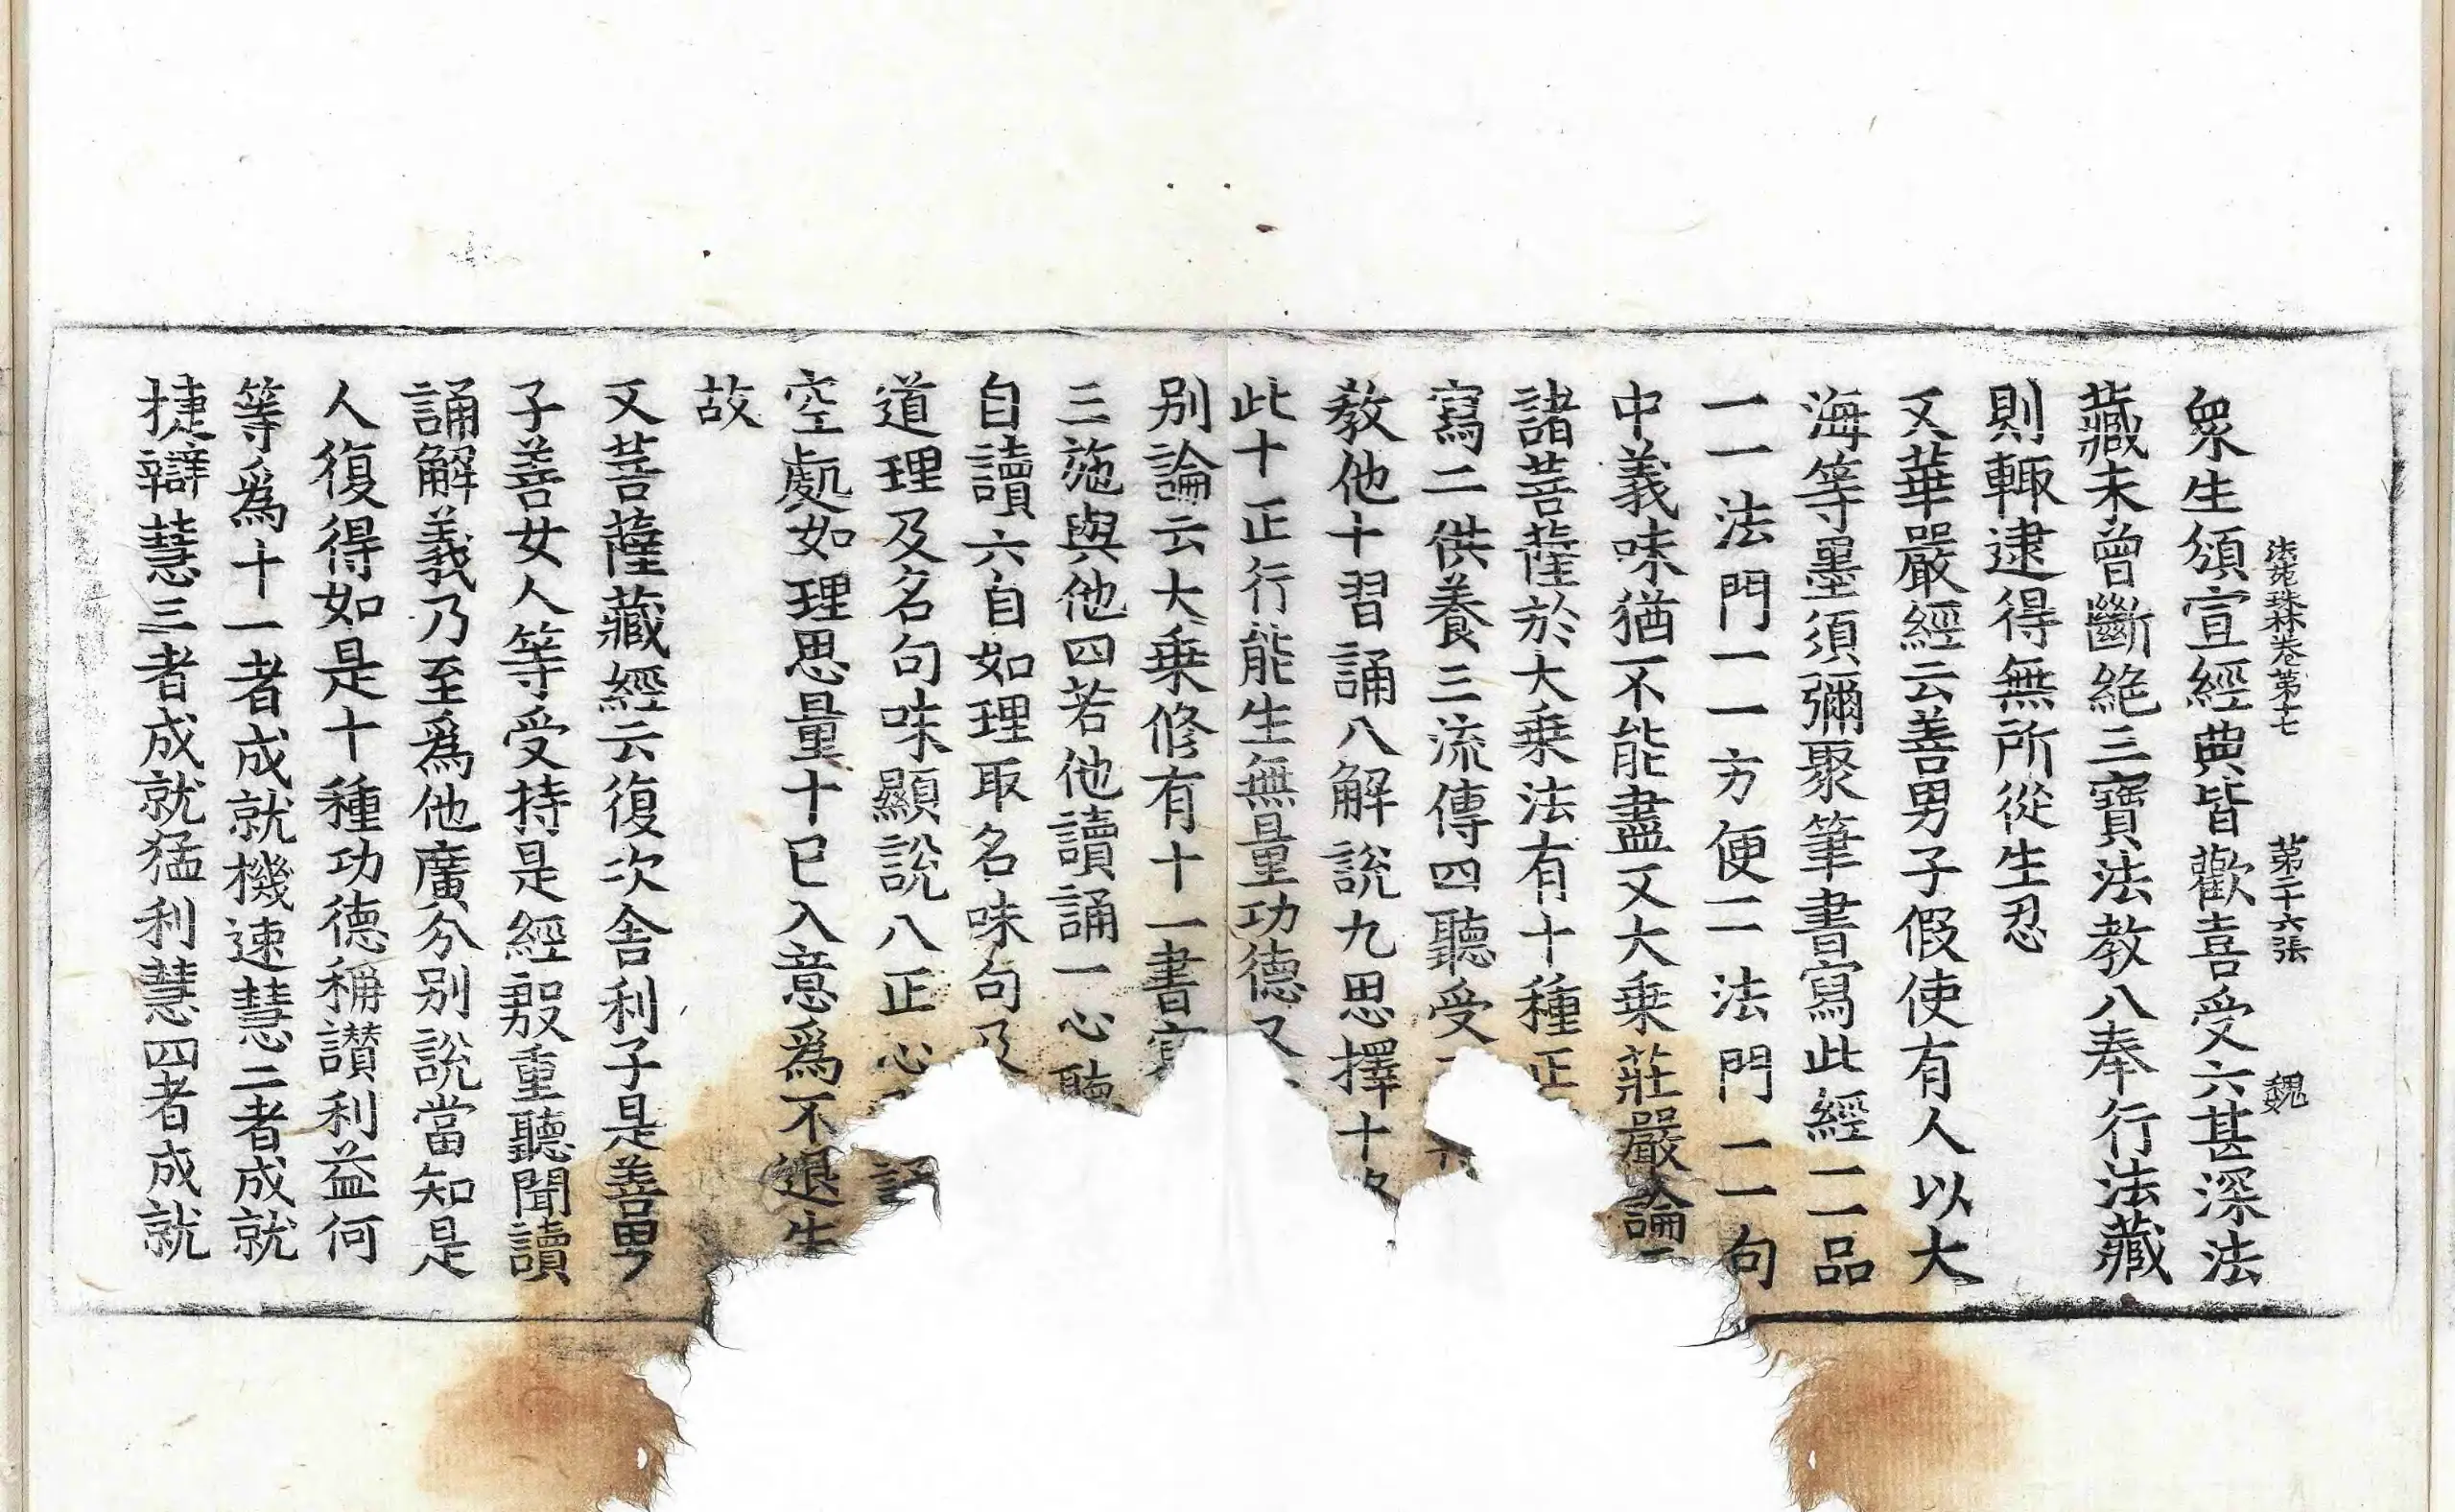 法苑珠林卷第十七 第二十六張 魏
衆生頒宣經典皆歡喜受六甚深法
藏未曾斷絶三寶法教八奉行法藏
則輙逮得無所從生忍
又華嚴經云善男子假使有人以大
海等墨須彌聚筆書寫此經一一品
一一法門一一方便一一法門一一句
中義味猶不能盡又大乗莊嚴論
諸菩薩於大乗法有十種正
寫二供養三流傳四聽受
教他十習誦八解說九思擇十
此十正行能生無量功德又
别論云大乗修有十一書
三施與他四若他讀誦一心聽
自讀六自如理取名味句及
道理及名句味顯說八正心
空處如理思量十已入意爲不退生
故
又菩薩藏經云復次舍利子是善男
子善女人等受持是經殷重聽聞讀
誦解義乃至爲他廣分别說當知是
人復得如是十種功德稱讃利益何
等爲十一者成就機速慧二者成就
捷辯慧三者成就猛利慧四者成就